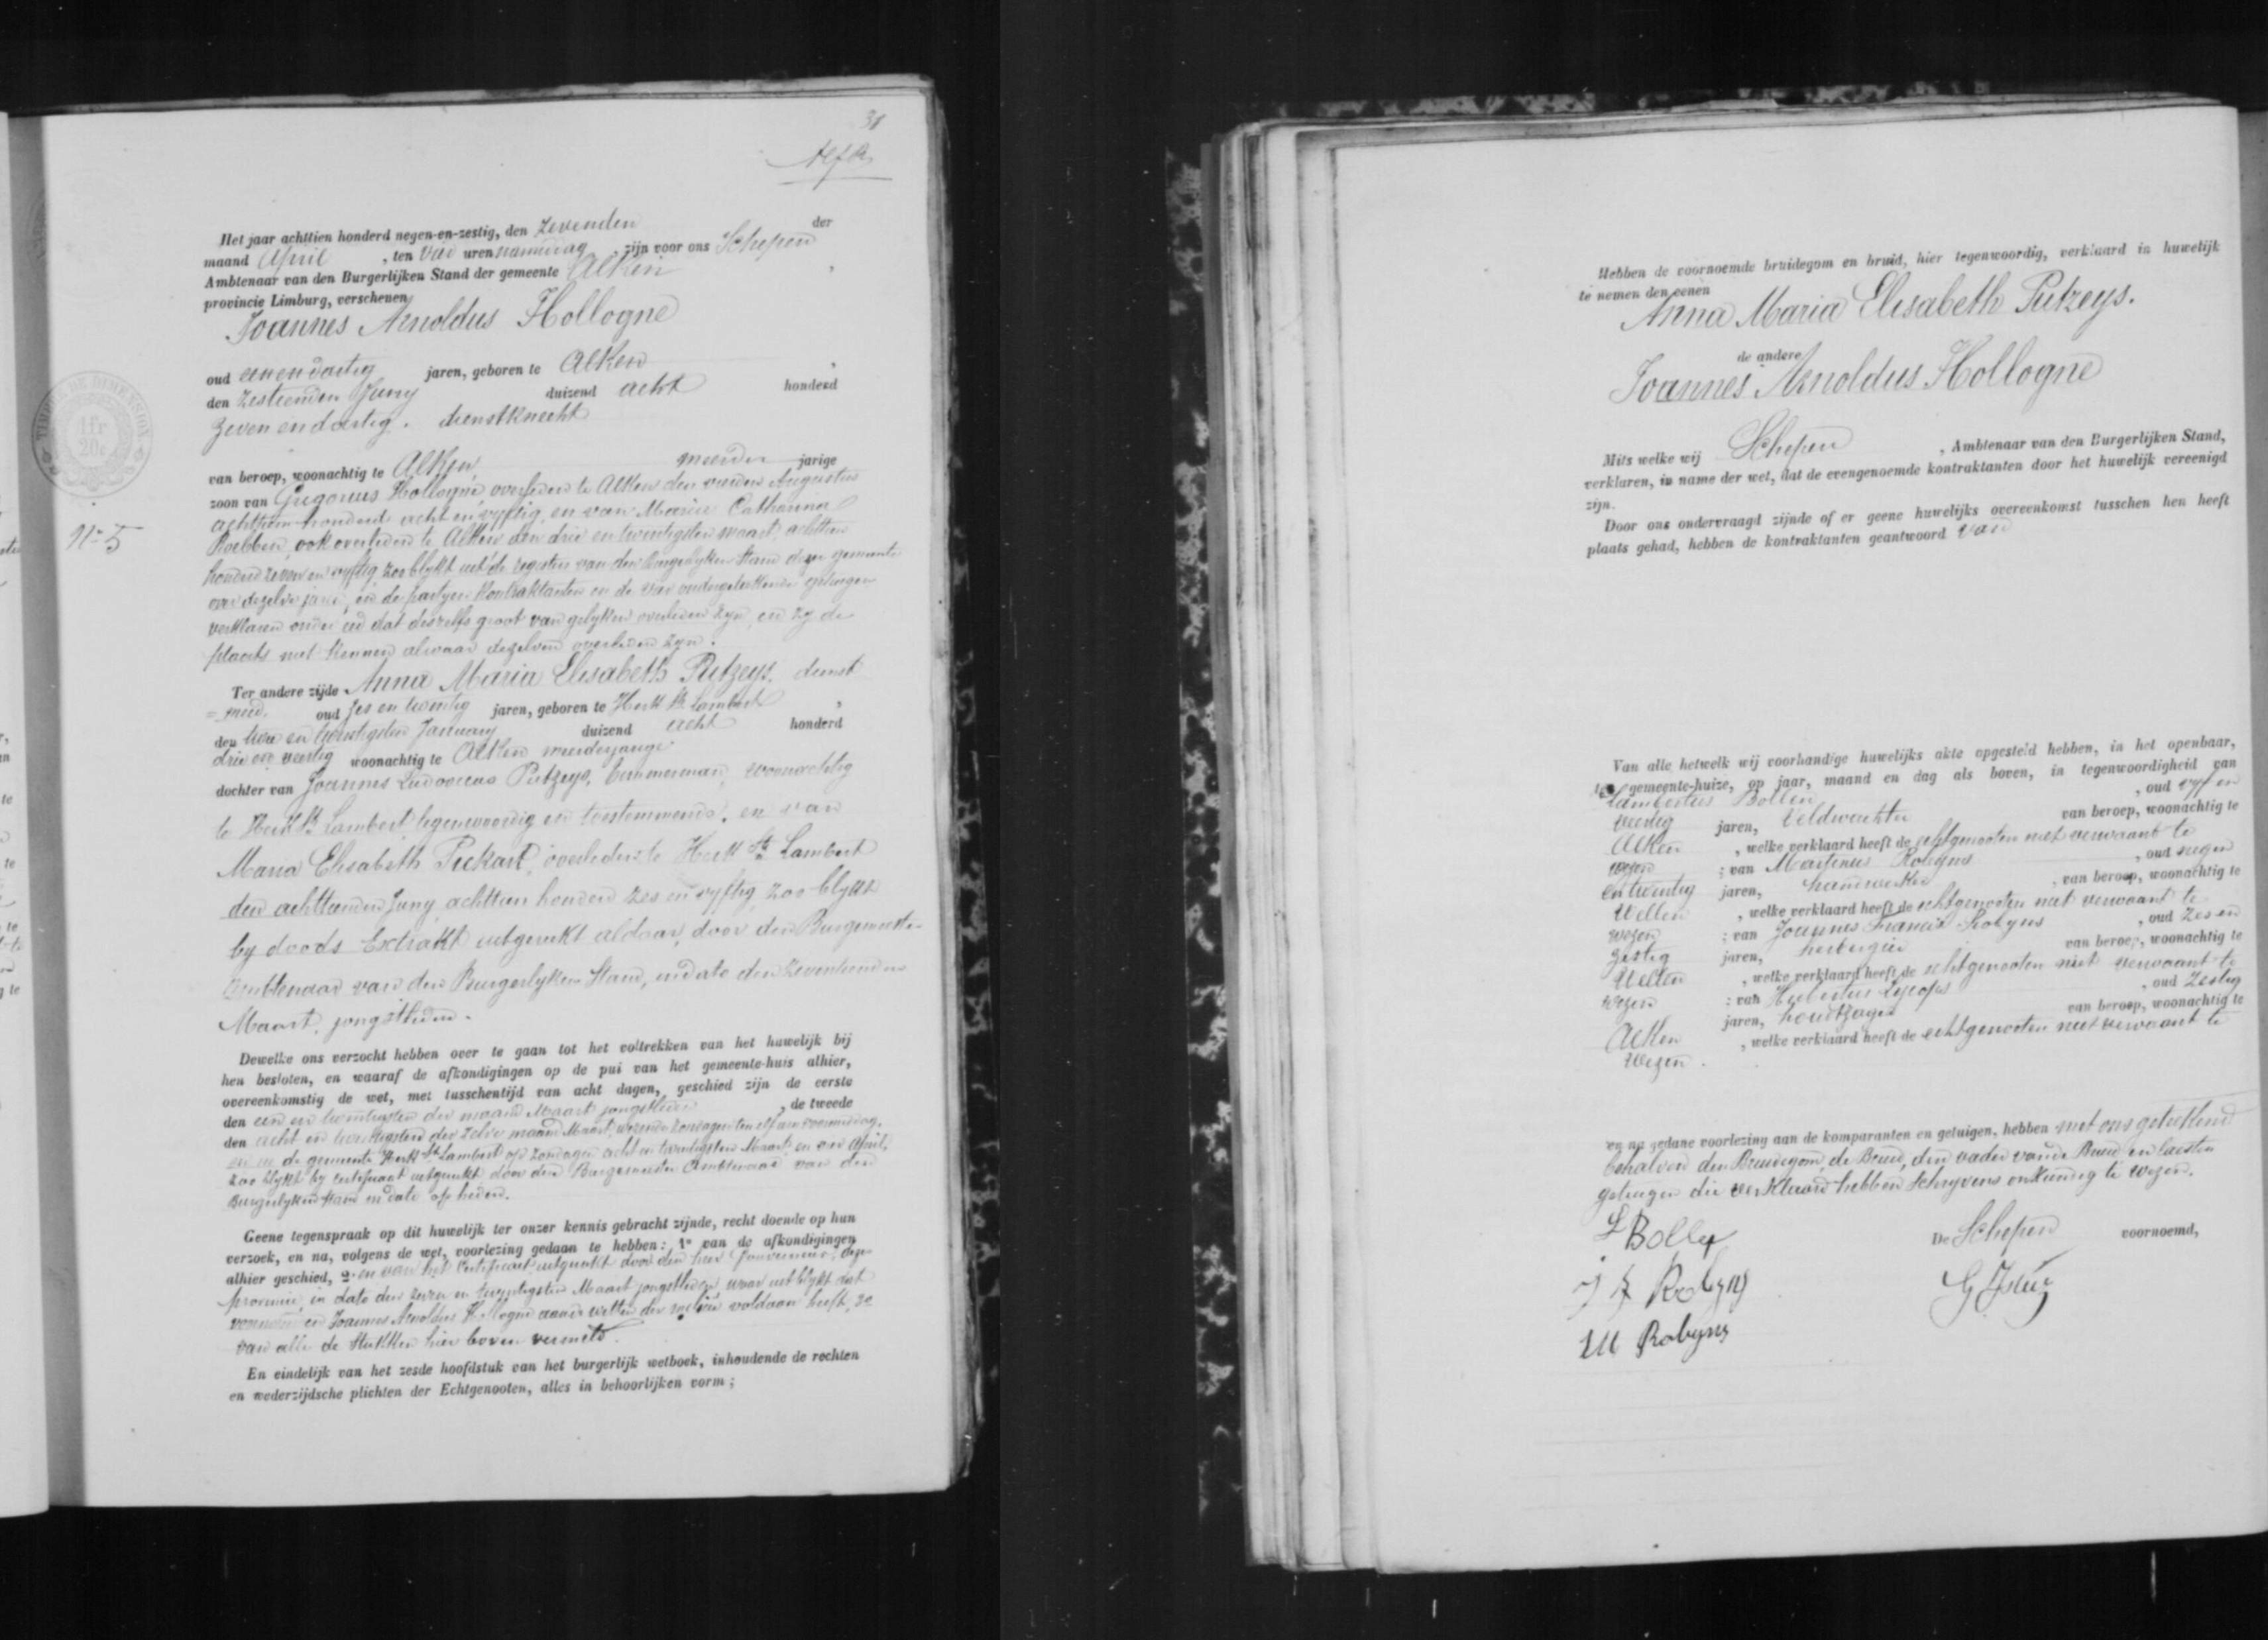 31
Het jaar achttien honderd negen-en-zestig, den zevenden der
maand April , ten vier uren namiddag , zijn voor ons Schepen
Ambtenaar van den Burgerlijken Stand der gemeente Alken ,
provincie Limburg, verschenen
Joannes Arnoldus Hollogne
oud eenendertig jaren, geboren te Alken ,
den zestienden Juny duizend acht honderd
zeven en dertig . dienstknecht
van beroep, woonachtig te Alken, meerder jarige
zoon van Gregorius Hollogne overleden te Alken den vierden Augustus
achttien honderd acht en vyftig, en van Maria Catharina
Roebben, ook overleden te Alken den drie en twintigsten maart achttien
honderd zeven en vyftig zoo blykt uit de registers van den burgerlyken Stand dezer gemeente
over dezelve jaren, en de partyen kontraktanten en de vier ondergeteekende getuigen
verklaren onder eed dat deszelfs groot van gelyken overleden zyn, en zy de
plaats niet kennen alwaar dezelven overleden zyn.
N° 5
TIMBRE DE DIMENSION
1fr
20c
Ter andere zijde Anna Maria Elisabeth Putzeys, dienst
= meid, oud zes en twintig jaren, geboren te Herk St Lambert ,
den twee en twintigsten January duizend acht honderd
drie en veertig woonachtig te Alken meerderjarige
dochter van Joannes Ludovicus Putzeys, timmerman, woonachtig
te Herk St Lambert, tegenwoordig en toestemmende, en van
Maria Elisabeth Pickart, overleden te Herk St Lambert
den achttienden Juny achttien honderd zes en vyftig, zoo blykt
by doods Extrakt uitgereikt aldaar, door den Burgemeester
Ambtenaar van den Burgerlyken Stand, in dato den zeventienden
Maart, jongstleden.
Dewelke ons verzocht hebben over te gaan tot het voltrekken van het huwelijk bij
hen besloten, en waaraf de afkondigingen op de pui van het gemeente-huis alhier,
overeenkomstig de wet, met tusschentijd van acht dagen, geschied zijn de eerste
den een en twintigsten der maand Maart jongstleden , de tweede
den acht en twintigsten der zelve maand Maart, wezende zondagen ten elf uren voormiddag,
en in de gemeente Herk St Lambert op zondagen acht en twintigsten Maart en vier April,
zoo blykt by certificaat uitgereikt door den Burgemeester Ambtenaar van den
Burgerlyken Stand in dato op heden.
Geene tegenspraak op dit huwelijk ter onzer kennis gebracht zijnde, recht doende op hun
verzoek, en na, volgens de wet, voorlezing gedaan te hebben: 1° van de afkondigingen
alhier geschied, 2° en van het Certificaat uitgereikt door den heer Gouverneur dezer
provincie, in dato den zeven en twintigsten Maart jongstleden waar uit blykt dat
voornoemden Joannes Arnoldus Hollogne aan de wetten der melisie voldaan heeft, 3°
van alle de stukken hier boven vermeld.
En eindelijk van het zesde hoofdstuk van het burgerlijk wetboek, inhoudende de rechten
en wederzijdsche plichten der Echtgenooten, alles in behoorlijken vorm ;
Hebben de voornoemde bruidegom en bruid, hier tegenwoordig, verklaard in huwelijk
te nemen den eenen
Anna Maria Elisabeth Putzeys.
de andere
Joannes Arnoldus Hollogne
Mits welke wij Schepen , Ambtenaar van den Burgerlijken Stand,
verklaren, in name der wet, dat de evengenoemde kontraktanten door het huwelijk vereenigd
zijn.
Door ons ondervraagd zijnde of er geene huwelijks overeenkomst tusschen hen heeft
plaats gehad, hebben de kontraktanten geantwoord van
Van alle hetwelk wij voorhandige huwelijks akte opgesteld hebben, in het openbaar,
gemeente-huize, op jaar, maand en dag als boven, in tegenwoordigheid van
Lambertus Bollen , oud vyf en
veertig jaren, Veldwachter van beroep, woonachtig te
Alken , welke verklaard heeft de echtgenooten niet verwant te
wezen ; van Martinus Robyns , oud negen
en twintig jaren, handwerker , van beroep, woonachtig te
Wellen , welke verklaard heeft de echtgenooten niet verwant te
wezen ; van Joannes Francis Robyns , oud zes en
zestig jaren, herbergier van beroep, woonachtig te
Wellen , welke verklaard heeft de echtgenooten niet verwant te
wezen ; van Hubertus , oud zestig
jaren, houtzager van beroep, woonachtig te
Alken , welke verklaard heeft de echtgenooten niet verwant te
wezen .
en na gedane voorlezing aan de komparanten en getuigen, hebben met ons geteekend
behalven den Bruidegom, de Bruid, den vader van de Bruid en laesten
getuigen die verklaard hebben schryvens onkundig te wezen.
L Bollen
De Schepen voornoemd,
J F Robyns
M Robyns